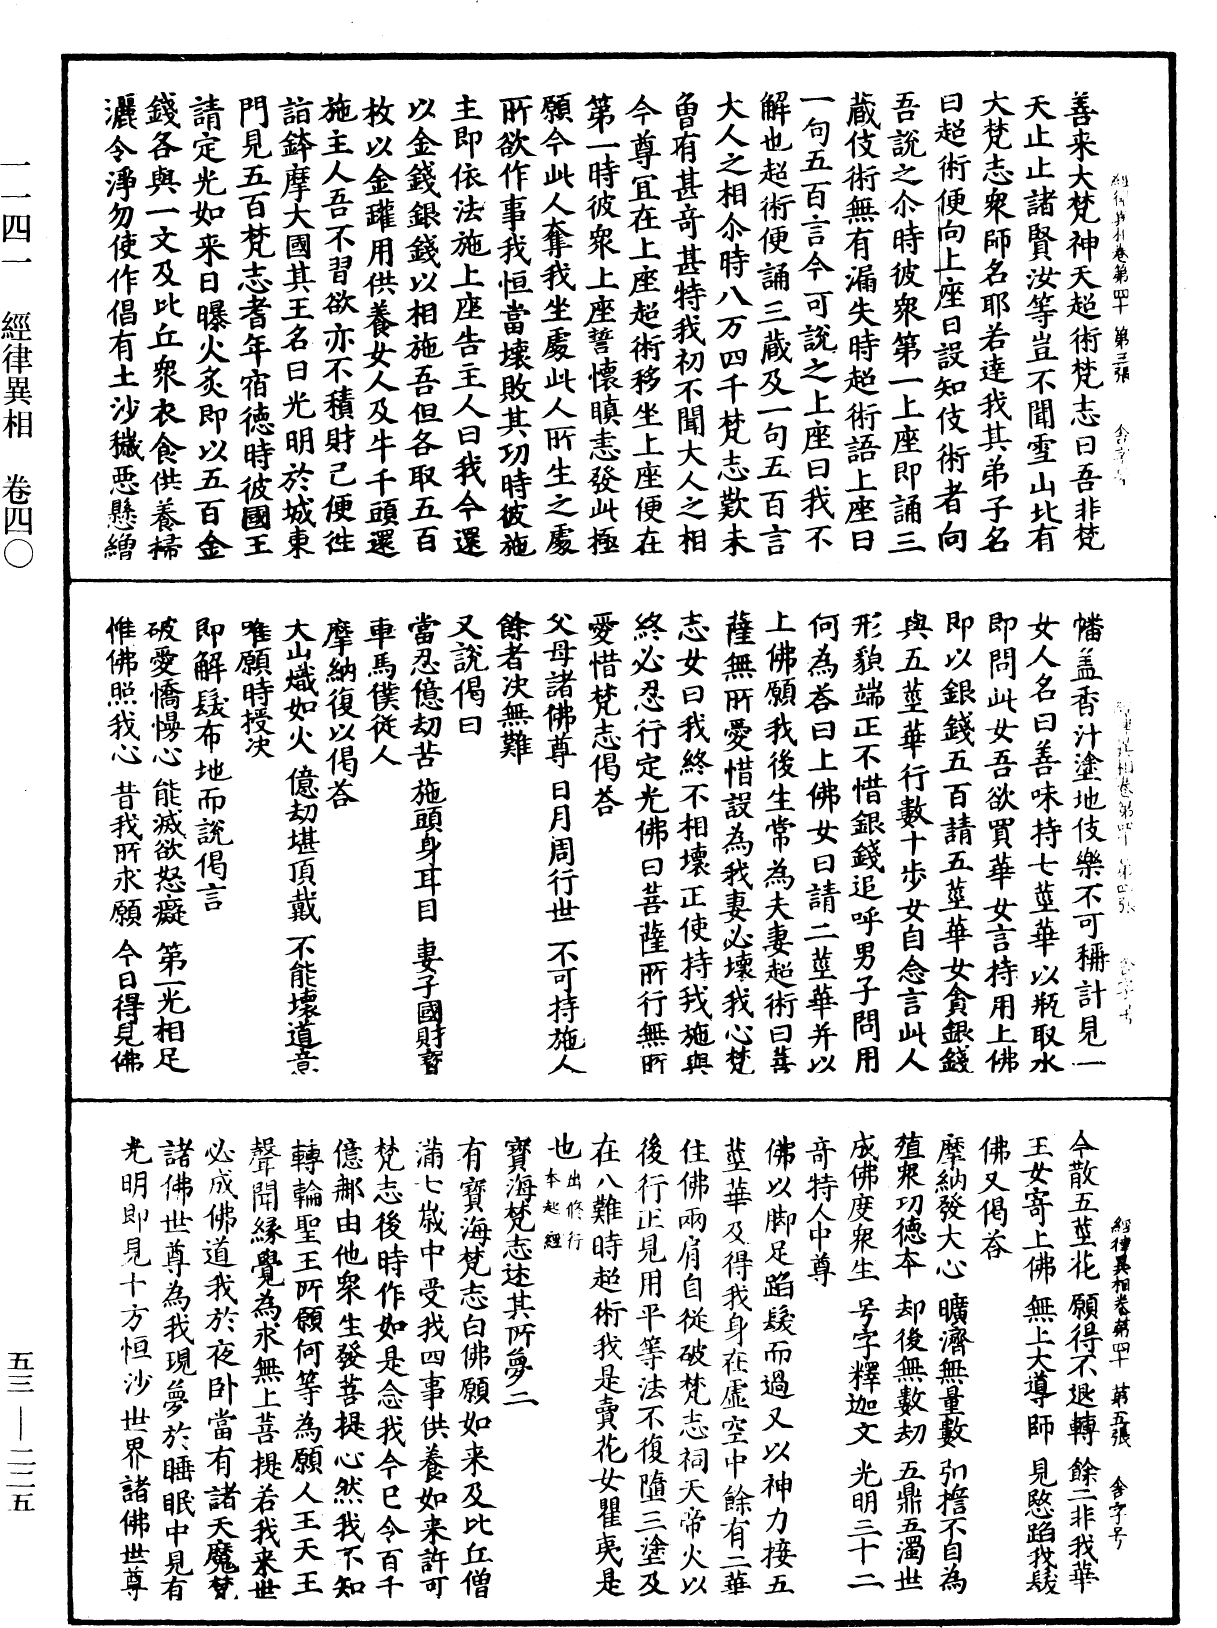 善来大梵神天超術梵志曰吾非梵
天止止諸賢汝等豈不聞雪山北有
大梵志衆師名耶若達我其弟子名
曰超術便向上座曰設知伎術者向
吾說之尒時彼衆第一上座即誦三
蔵伎術無有漏失時超術語上座曰
一句五百言今可說之上座曰我不
解也超術便誦三蔵及一句五百言
大人之相尒時八万四千梵志歎未
曾有甚竒甚特我初不聞大人之相
今尊宜在上座超術移坐上座便在
第一時彼衆上座誓懷瞋恚發此極
願今此人奪我坐處此人所生之處
所欲作事我恒當壞敗其功時彼施
主即依法施上座告主人曰我今還
以金錢銀錢以相施吾但各取五百
枚以金鑵用供養女人及牛千頭還
施主人吾不習欲亦不積財已便徃
詣鉢摩大國其王名曰光明於城東
門見五百梵志耆年宿徳時彼國王
請定光如来日曝火炙即以五百金
錢各與一文及比丘衆衣食供養掃
灑令淨勿使作倡有土沙穢惡懸繒
幡盖香汁塗地伎樂不可稱計見一
女人名曰善味持七莖華以瓶取水
即問此女吾欲買華女言持用上佛
即以銀錢五百請五莖華女貪銀錢
與五莖華行數十歩女自念言此人
形貌端正不惜銀錢追呼男子問用
何為荅曰上佛女曰請二莖華并以
上佛願我後生常為夫妻超術曰菩
薩無所愛惜設為我妻必壞我心梵
志女曰我終不相壞正使持我施與
終必忍行定光佛曰菩薩所行無所
愛惜梵志偈荅
父母諸佛尊 日月周行世 不可持施人
餘者決無難
又說偈曰
當忍億劫苦 施頭身耳目 妻子國財寳
車馬僕従人
摩納復以偈荅
大山熾如火 億劫堪頂戴 不能壞道意
唯願時授決
即解髮布地而說偈言
破愛憍慢心 能滅欲怒癡 第一光相足
惟佛照我心 昔我所求願 今日得見佛
今散五莖花 願得不退轉 餘二非我華
王女寄上佛 無上大導師 見愍蹈我髮
佛又偈荅
摩納發大心 曠濟無量數 弘擔不自為
殖衆功徳本 却後無數劫 五鼎五濁世
成佛度衆生 号字釋迦文 光明三十二
竒特人中尊
佛以脚足蹈髮而過又以神力接五
莖華及得我身在虚空中餘有二華
住佛兩肩自従破梵志祠天帝火以
後行正見用平等法不復墮三塗及
在八難時超術我是賣花女瞿夷是
也 出修行本起經
寳海梵志述其所夢二
有寳海梵志白佛願如来及比丘僧
滿七歳中受我四事供養如来許可
梵志後時作如是念我今已令百千
億郍由他衆生發菩提心然我不知
轉輪聖王所願何等為願人王天王
聲聞縁覺為求無上菩提若我来世
必成佛道我於夜卧當有諸天魔梵
諸佛世尊為我現夢於睡眠中見有
光明即見十方恒沙世界諸佛世尊
經律異相卷第四十 第三張
經律異相卷第四十 第四張
經律異相卷第四十 第五張 舎字号
一一四一 經律異相 卷四〇
五三——二二五